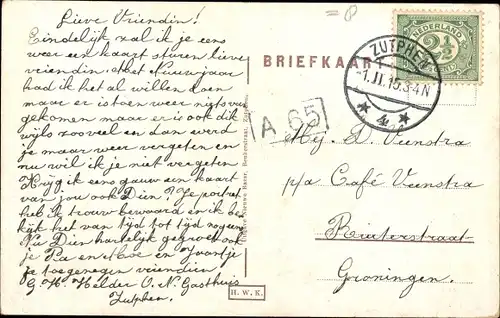 Lieve Vriendin!
Eindelijk zal ik je eens
weer een kaart sturen lieve
vriendin. Met Nieuwjaar
had ik het al willen doen
maar er is toen weer niets van
gekomen maar er is ook dik
wijls zooveel en dan werd
je maar weer vergeten en
nu wil ik je niet vergeten
Krijg ik eens gauw een kaart
van jou ook Dien? Je portret
heb ik trouw bewaard en ik be
kijk het van tijd tot tijd nog eens
Nu Dien hartelijk gegroet ook
je Pa en Moe en Zwantje
je toegenegen vriendin
G. H. Helder O. N. Gasthuis
Zutphen.
H. W. K.
BRIEFKAART
A 65
ZUTPHEN
1.II.15.3-4N
NEDERLAND
2½
Mej. D. Veenstra
p/a Café Veenstra
Ruiterstraat
Groningen.